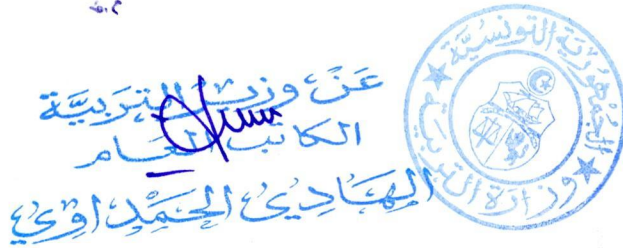 عَنْ وزير التربيَّة
الكاتب العَام
الهَادِي الحَمْدَاوِي
الجُمْهُورِيَّة التُونِسِيَّة
وزارة التربية